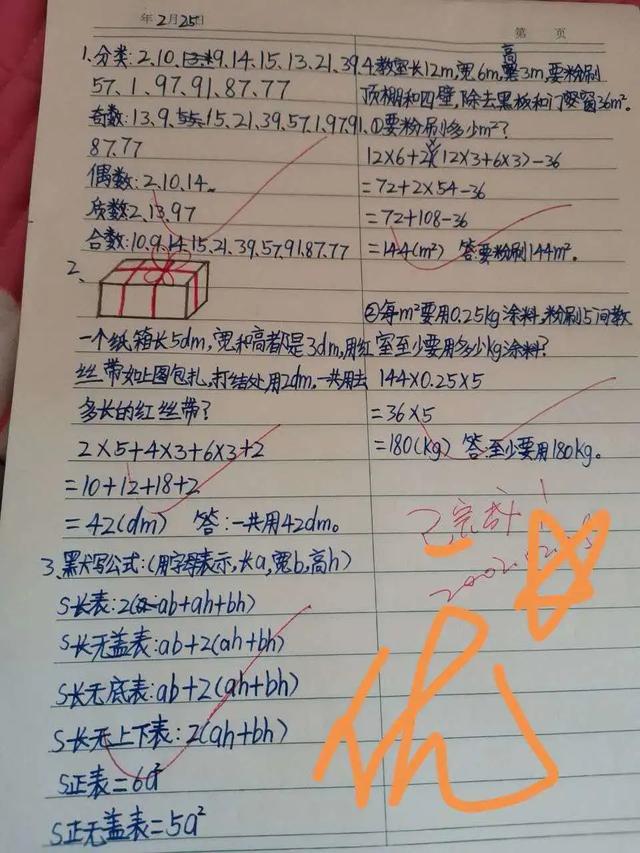 年2月25日
第 页
1.分类:2.10.9.14.15.13.21.39.
57.1.97.91.87.77
奇数:13.9.15.21.39.57.1.97.91.
87.77
偶数:2.10.14.
质数2.13.97
合数:10.9.14.15.21.39.57.91.87.77
2、
一个纸箱长5dm,宽和高都是3dm,用红
丝带如上图包扎,打结处用2dm.一共用去
多长的红丝带?
2×5+4×3+6×3+2
=10+12+18+2
=42(dm) 答:一共用42dm。
3.默写公式:(用字母表示,长a,宽b,高h)
S长表:2(ab+ah+bh)
S长无盖表:ab+2(ah+bh)
S长无底表:ab+2(ah+bh)
S长无上下表:2(ah+bh)
S正表=6a²
S正无盖表=5a²
4.教室长12m,宽6m,高3m,要粉刷
顶棚和四壁,除去黑板和门窗留36m².
①要粉刷多少m²?
12×6+2×(12×3+6×3)-36
=72+2×54-36
=72+108-36
=144(m²) 答:要粉刷144m².
②每m²要用0.25kg涂料,粉刷5间教
室至少要用多少kg涂料?
144×0.25×5
=36×5
=180(kg) 答:至少要用180kg。
已完成!
优